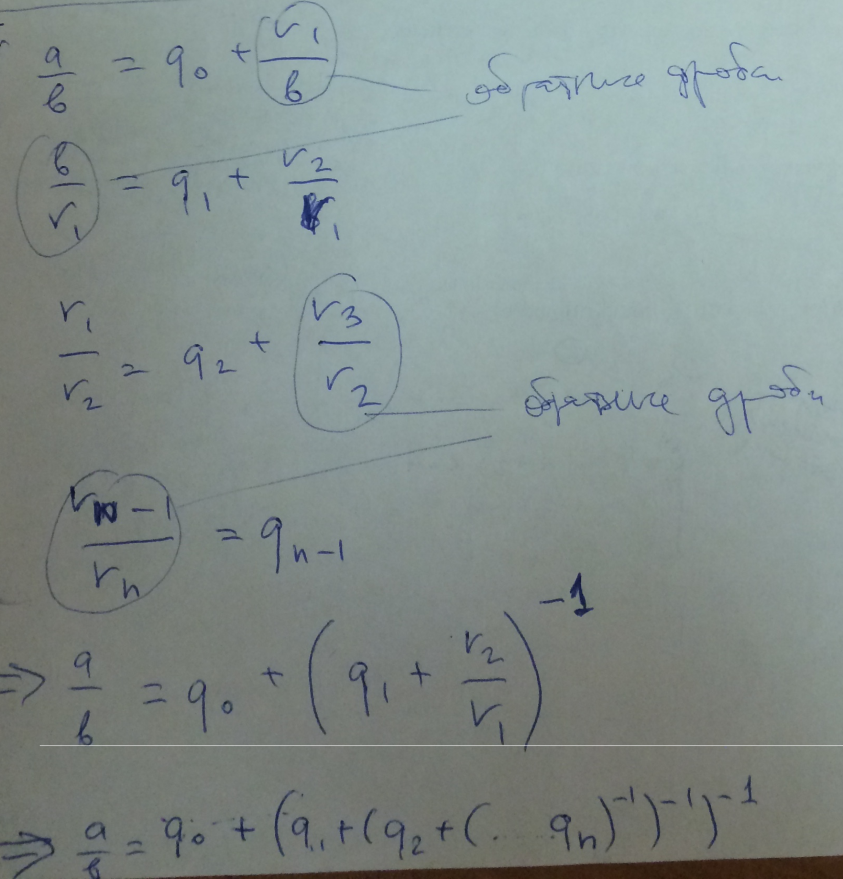 a/b = q₀ + r₁/b обратные дроби
b/r₁ = q₁ + r₂/r₁
r₁/r₂ = q₂ + r₃/r₂ обратные дроби
rₙ₋₁/rₙ = qₙ₋₁
⇒ a/b = q₀ + (q₁ + r₂/r₁)⁻¹
⇒ a/b = q₀ + (q₁ + (q₂ + (. . qₙ)⁻¹)⁻¹)⁻¹